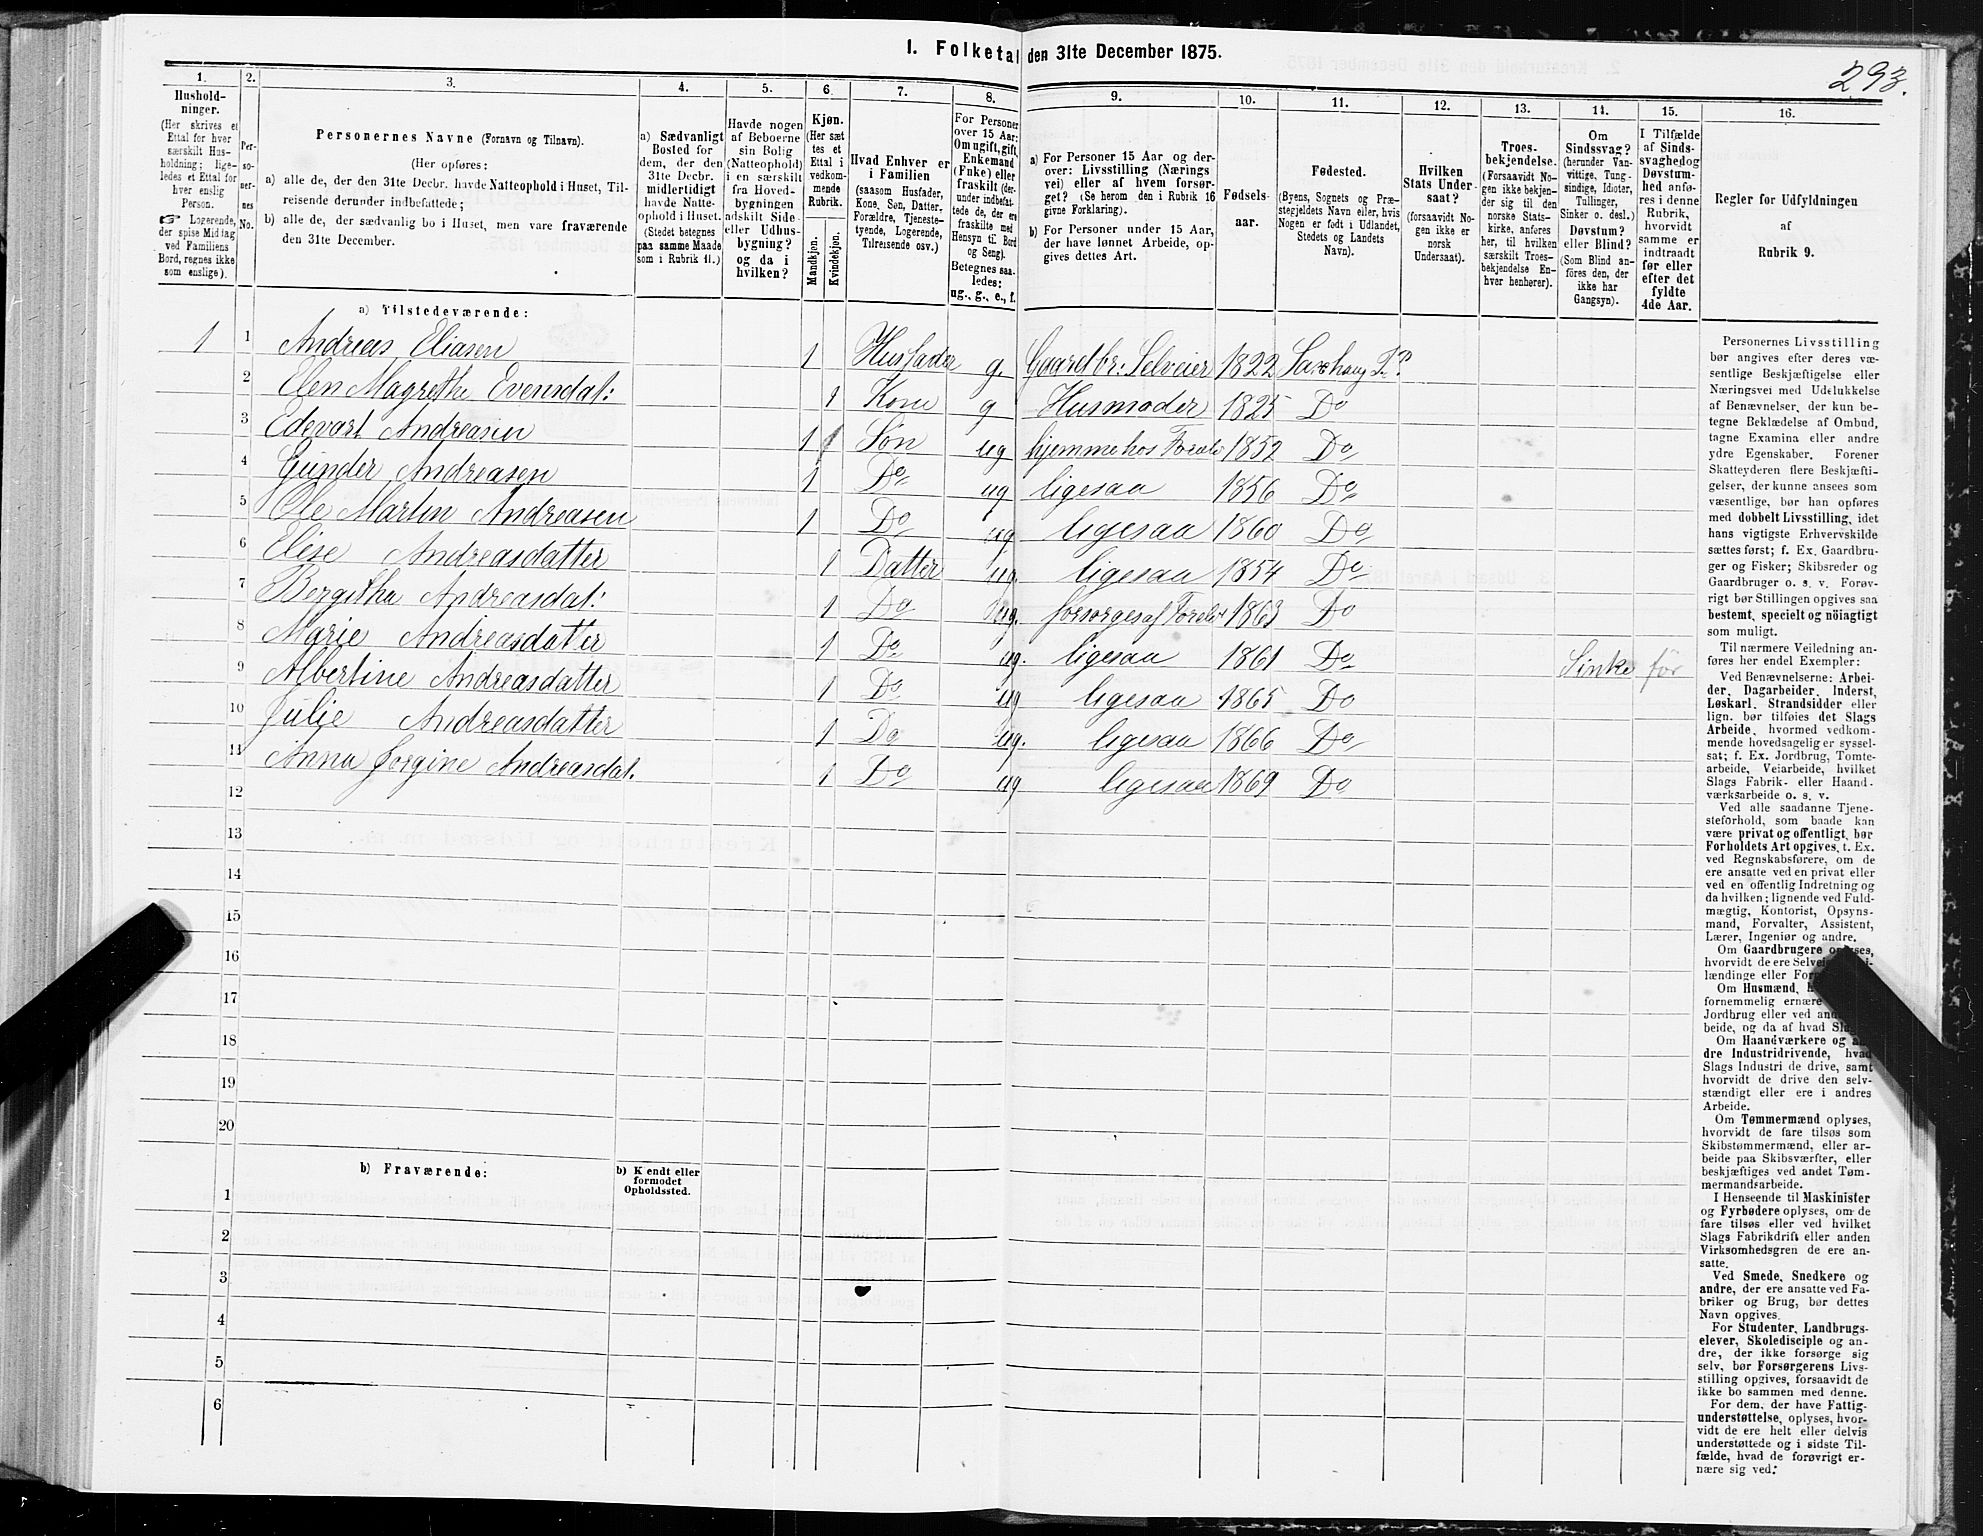 I. Folketal den 31te December 1875.
293.
1. 2. 3. 4. 5. 6. 7. 8. 9. 10. 11. 12. 13. 14. 15. 16.
Husholdninger.
(Her skrives et
Ettal for hver
særskilt Husholdning; ligeledes et Ettal for
hver enslig
Person.
☞ Logerende,
der spise Middag
ved Familiens
Bord, regnes ikke
som enslige).
Personernes No.
Personernes Navne (Fornavn og Tilnavn).
(Her opføres:
a) alle de, der den 31te Decbr. havde Natteophold i Huset, Tilreisende derunder indbefattede;
b) alle de, der sædvanlig bo i Huset, men vare fraværende
den 31te December.
a) Sædvanligt
Bosted for
dem, der den
31te Decbr.
midlertidigt
havde Natteophold i Huset.
(Stedet betegnes
paa samme Maade
som i Rubrik 11.)
Havde nogen
af Beboerne
sin Bolig
(Natteophold)
i en særskilt
fra Hovedbygningen
adskilt Side-
eller Udhusbygning?
og da i
hvilken?
Kjøn.
(Her sættes et
Ettal i
vedkommende
Rubrik.
Mandkjøn.
Kvindekjøn.
Hvad Enhver er
i Familien
(saasom Husfader,
Kone, Søn, Datter,
Forældre, Tjenestetyende, Logerende,
Tilreisende osv.)
For Personer
over 15 Aar:
Om ugift, gift,
Enkemand
(Enke) eller
fraskilt (derunder indbefattede de, der ere
fraskilte med
Hensyn til Bord
og Seng).
Betegnes saaledes:
ug., g., e., f.
a) For Personer 15 Aar og derover: Livsstilling (Næringsvei) eller af hvem forsørget? (Se herom den i Rubrik 16
givne Forklaring).
b) For Personer under 15 Aar,
der have lønnet Arbeide, opgives dettes Art.
Fødselsaar.
Fødested.
(Byens, Sognets og Præstegjeldets Navn eller, hvis
Nogen er født i Udlandet,
Stedets og Landets
Navn).
Hvilken
Stats Undersaat?
(forsaavidt Nogen ikke er
norsk
Undersaat).
Troesbekjendelse.
(Forsaavidt Nogen ikke bekjender sig til den
norske Statskirke, anføres
her, til hvilken
særskilt Troesbekjendelse Enhver henhører).
Om
Sindssvag?
(herunder Vanvittige, Tungsindige, Idioter,
Tullinger,
Sinker o. desl.)
Døvstum?
eller Blind?
(Som Blind anføres den, der
ikke har
Gangsyn).
I Tilfælde
af Sindssvaghed og
Døvstumhed anføres i denne
Rubrik,
hvorvidt
samme er
indtraadt
før eller
efter det
fyldte
4de Aar.
Regler for Udfyldningen
af
Rubrik 9.
a) Tilstedeværende:
1 1 Andreas Eliasen 1 Husfader g. Gaardbr: Selveier 1822 Saxhaug
2 Elen Magrethe Evensdat: 1 Kone g Husmoder 1825 Do
3 Edevart Andreasen 1 1 Søn ug hjemme hos Foreld 1852 Do
4 Gunder Andreasen 1 Do ug ligesaa 1856 Do
5 Ole Martin Andreasen 1 Do ug ligesaa 1860 Do
6 Elise Andreasdatter 1 Datter ug. ligesaa 1854 Do
7 Bergitha Andreasdat: 1 Do ug. forsorges af Foreld 1863 Do
8 Marie Andreasdatter 1 Do ug. ligesaa 1861 Do Sinke før
9 Albertine Andreasdatter 1 Do ug ligesaa 1865 Do
10 Julie Andreasdatter 1 Do ug. ligesaa 1866 Do
11 Anna Jørgine Andreasdat. 1 Do ug ligesaa 1869 Do
12
13
14
15
16
17
18
19
20
b) Fraværende:
b) Kendt eller
formodet
Opholdssted.
1
2
3
4
5
6
Personernes Livsstilling
bør angives efter deres væsentlige Beskjæftigelse eller
Næringsvei med Udelukkelse
af Benævnelser, der kun betegne Beklædelse af Ombud,
tagne Examina eller andre
ydre Egenskaber. Forener
Skatteyderen flere Beskjæftigelser, der kunne ansees som
væsentlige, bør han opføres
med dobbelt Livsstilling, idet
hans vigtigste Erhvervskilde
sættes først; f. Ex. Gaardbruger og Fisker; Skibsreder og
Gaardbruger o. s. v. Forøvrigt bør Stillingen opgives saa
bestemt, specielt og nöiagtigt
som muligt.
Til nærmere Veiledning anføres her endel Exempler:
Ved Benævnelserne: Arbeider, Dagarbeider, Inderst,
Løskarl, Strandsidder eller
lign. bør tilføies det Slags
Arbeide, hvormed vedkommende hovedsagelig er sysselsat; f. Ex. Jordbrug, Tomtearbeide, Veiarbeide, hvilket
Slags Fabrik- eller Haandværksarbeide o. s. v.
Ved alle saadanne Tjenesteforhold, som baade kan
være privat og offentligt, bør
Forholdets Art opgives, t. Ex.
ved Regnskabsførere, om de
ere ansatte ved en privat eller
ved en offentlig Indretning og
da hvilken; lignende ved Fuldmægtig, Kontorist, Opsynsmand, Forvalter, Assistent,
Lærer, Ingeniør og andre.
Om Gaardbrugere
hvorvidt de ere
lændinge eller
Om Husmænd,
fornemmelig ernære
Jordbrug eller ved
beide, og da af hvad
Om Haandværkere og andre Industridrivende, hvad
Slags Industri de drive, samt
hvorvidt de drive den selvstændigt eller ere i andres
Arbeide.
Om Tømmermænd oplyses,
hvorvidt de fare tilsøs som
Skibstømmermænd, eller arbeide paa Skibsværfter, eller
beskjæftiges ved andet Tømmermandsarbeide.
I Henseende til Maskinister
og Fyrbødere oplyses, om de
fare tilsøs eller ved hvilket
Slags Fabrikdrift eller anden
Virksomhedsgren de ere ansatte.
Ved Smede, Snedkere og
andre, der ere ansatte ved Fabriker og Brug, bør dettes
Navn opgives.
For Studenter, Landbrugselever, Skoledisciple og andre, der ikke forsørge sig
selv, bør Forsørgerens Livsstilling opgives, forsaavidt de
ikke bo sammen med denne.
For dem, der have Fattigunderstøttelse, oplyses, hvorvidt de ere helt eller delvis
understøttede og i sidste Tilfælde, hvad de forøvrigt ernære sig ved.